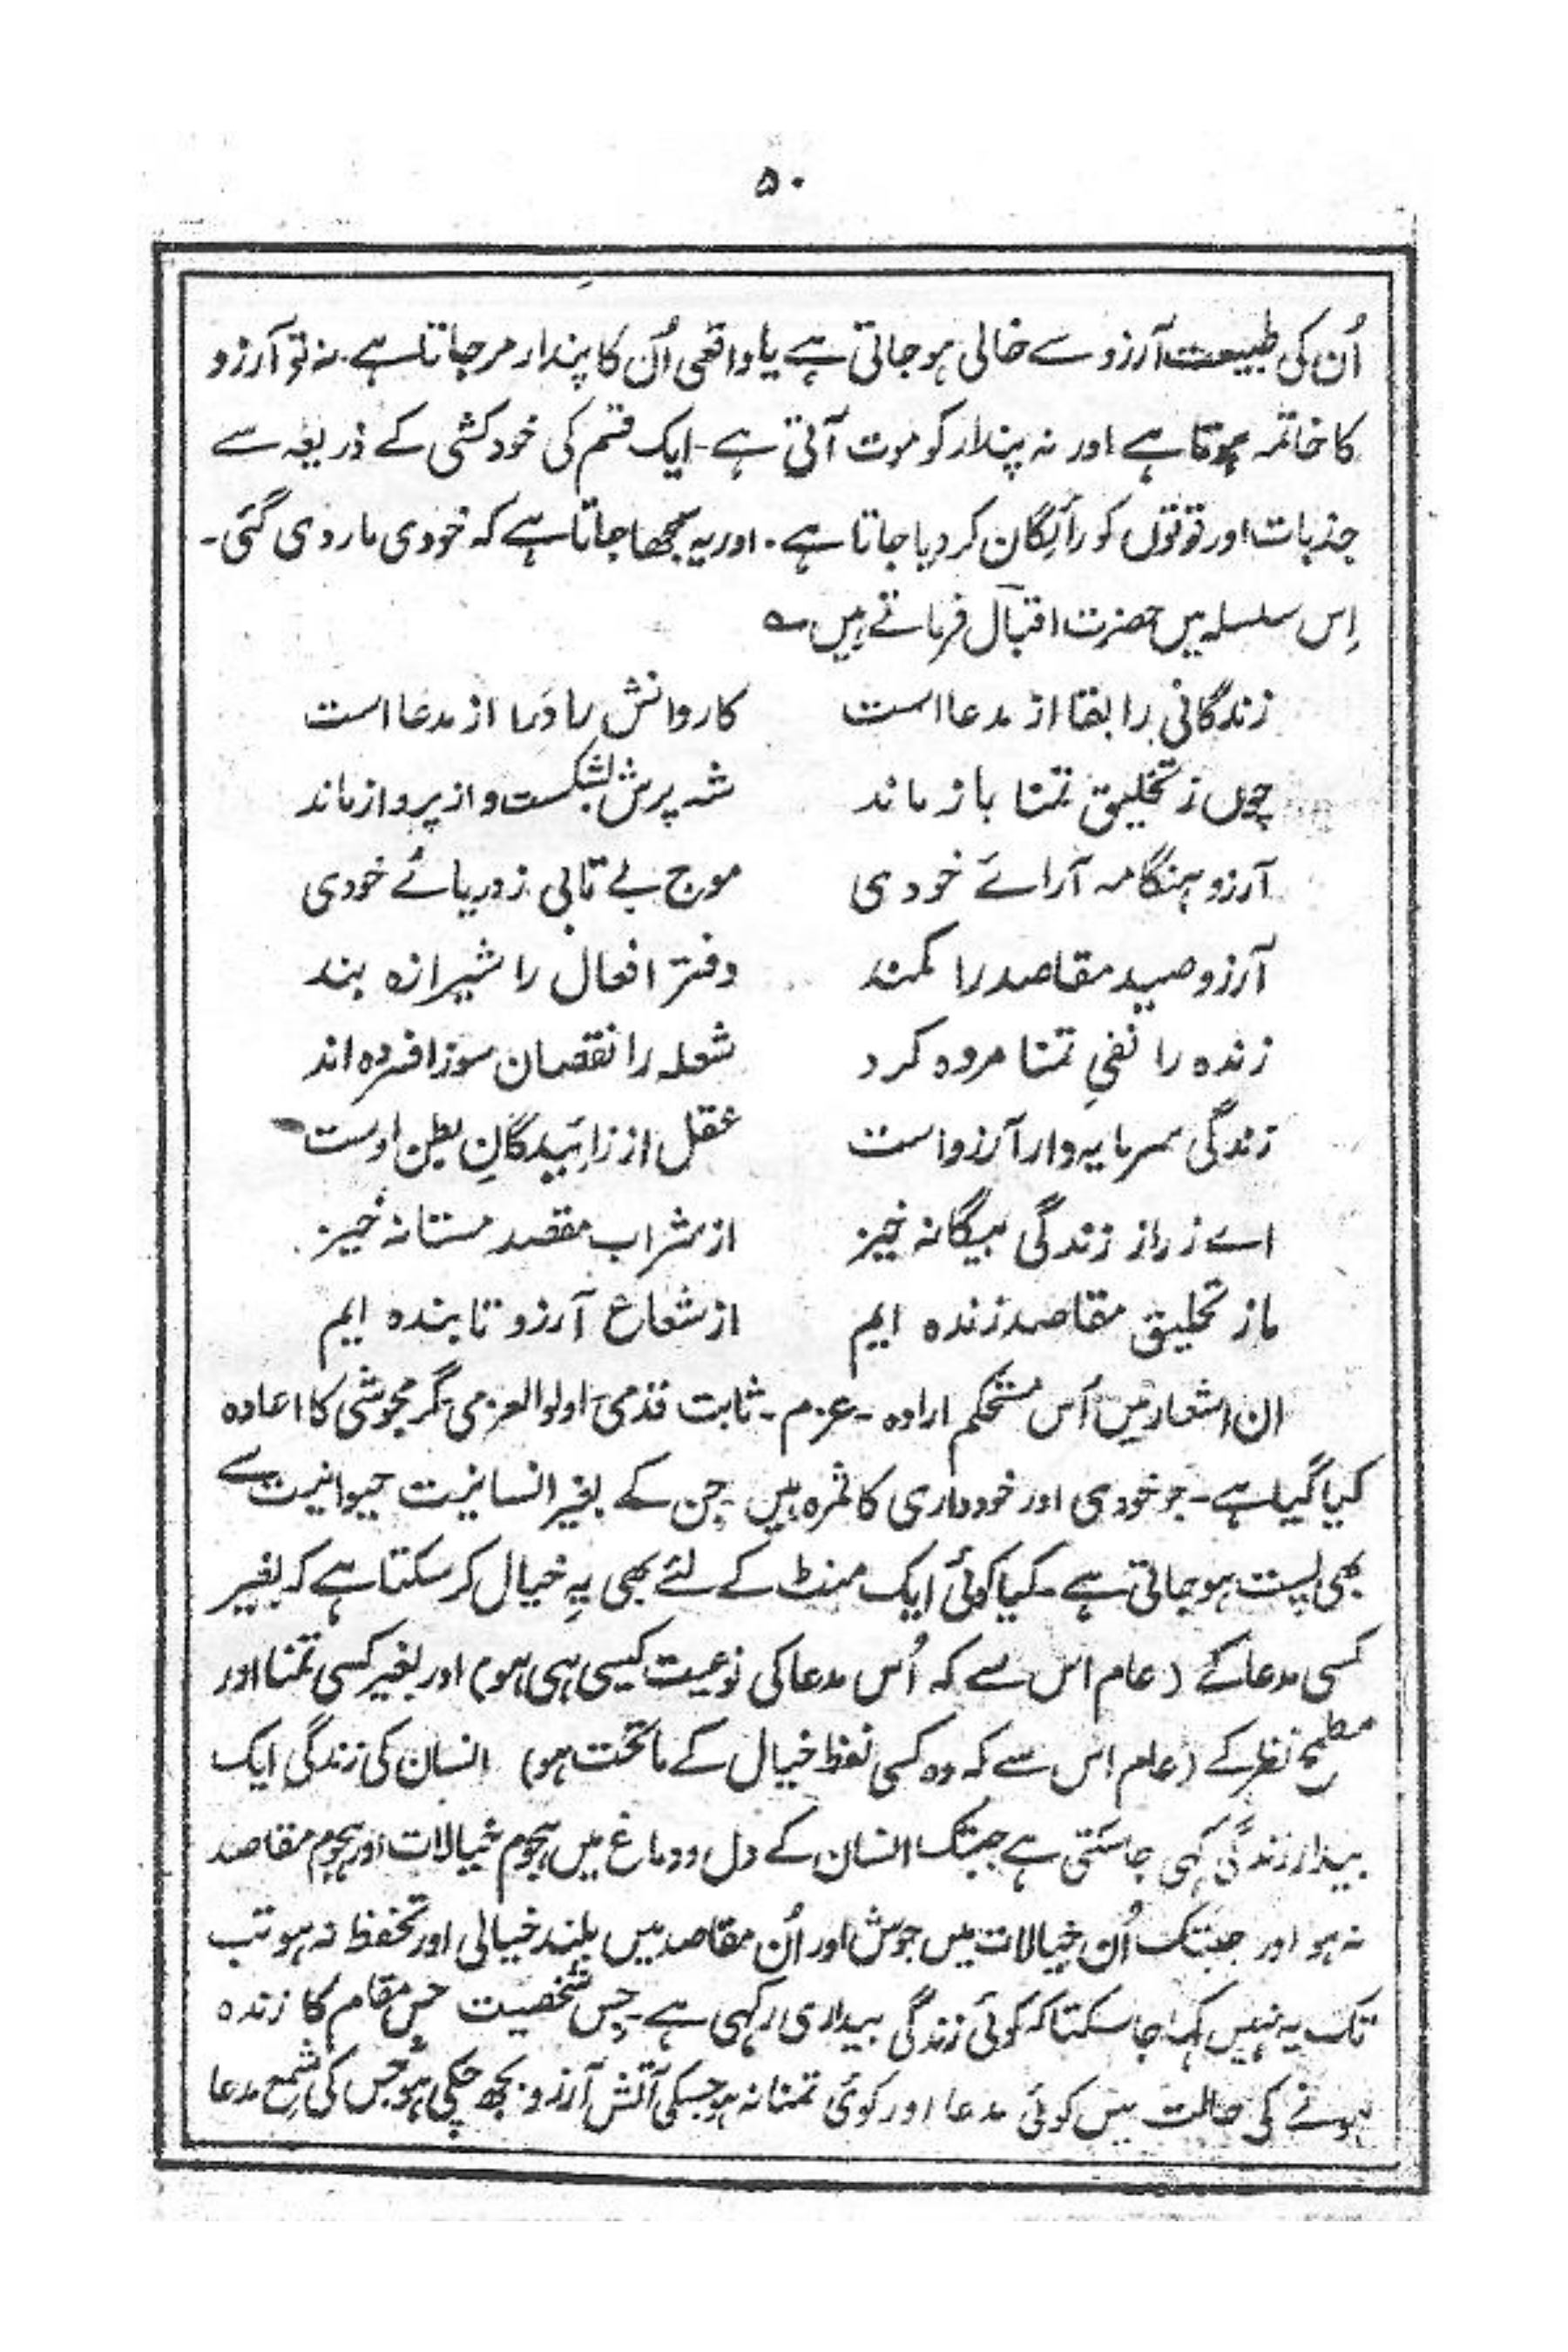 ۵۰
اُن کی طبیعت آرزو سے خالی ہو جاتی ہے یا واقعی اُن کا پندار مر جاتا ہے۔ نہ تو آرزو
کا خاتمہ ہوتا ہے اور نہ پندار کو موت آتی ہے۔ ایک قسم کی خودکشی کے ذریعہ سے
جذبات اور قوتوں کو رائگان کر دیا جاتا ہے۔ اور یہ سمجھا جاتا ہے کہ خودی مار دی گئی۔
اِس سلسلہ میں حضرت اقبال فرماتے ہیں ؎
زندگانی را بقا از مدعا است کاروانش را درا از مدعا است
چوں ز تخلیق تمنا باز ماند شہ پرش بشکست و از پرواز ماند
آرزو ہنگامہ آرائے خودی موج بے تابی ز دریائے خودی
آرزو صید مقاصد را کمند دفتر افعال را شیرازہ بند
زندہ را نفیِ تمنا مردہ کرد شعلہ را نقصان سوز افسردہ اند
زندگی سرمایہ دار آرزو است عقل از زائیدگانِ بطن اوست
اے ز راز زندگی بیگانہ خیز از شراب مقصد مستانہ خیز
ما ز تخلیق مقاصد زندہ ایم از شعاع آرزو تابندہ ایم
ان اشعار میں اُس مستحکم ارادہ۔ عزم۔ ثابت قدمی، اولوالعزمی، گرمجوشی کا اعادہ
کیا گیا ہے۔ جو خودی اور خودداری کا ثمرہ ہیں۔ جن کے بغیر انسانیت حیوانیت سے
بھی پست ہو جاتی ہے۔ کیا کوئی ایک منٹ کے لئے بھی یہ خیال کر سکتا ہے کہ بغیر
کسی مدعا کے (عام اس سے کہ اُس مدعا کی نوعیت کیسی ہی ہو) اور بغیر کسی تمنا اور
مطمح نظر کے (عام اس سے کہ وہ کسی خیال کے ماتحت ہو) انسان کی زندگی ایک
بیدار زندگی کہی جا سکتی ہے جبتک انسان کے دل و دماغ میں ہجوم خیالات اور ہجوم مقاصد
نہ ہو اور جبتک اُن خیالات میں جوش اور اُن مقاصد میں بلند خیالی اور تحفظ نہ ہو تب
تک یہ نہیں کہا جا سکتا کہ کوئی زندگی بیداری رکھتی ہے۔ جس شخصیت جس مقام کا زندہ
ہونے کی حالت میں کوئی مدعا اور کوئی تمنا نہ ہو جسکی آتش آرزو بجھ چکی ہو جس کی شمع مدعا